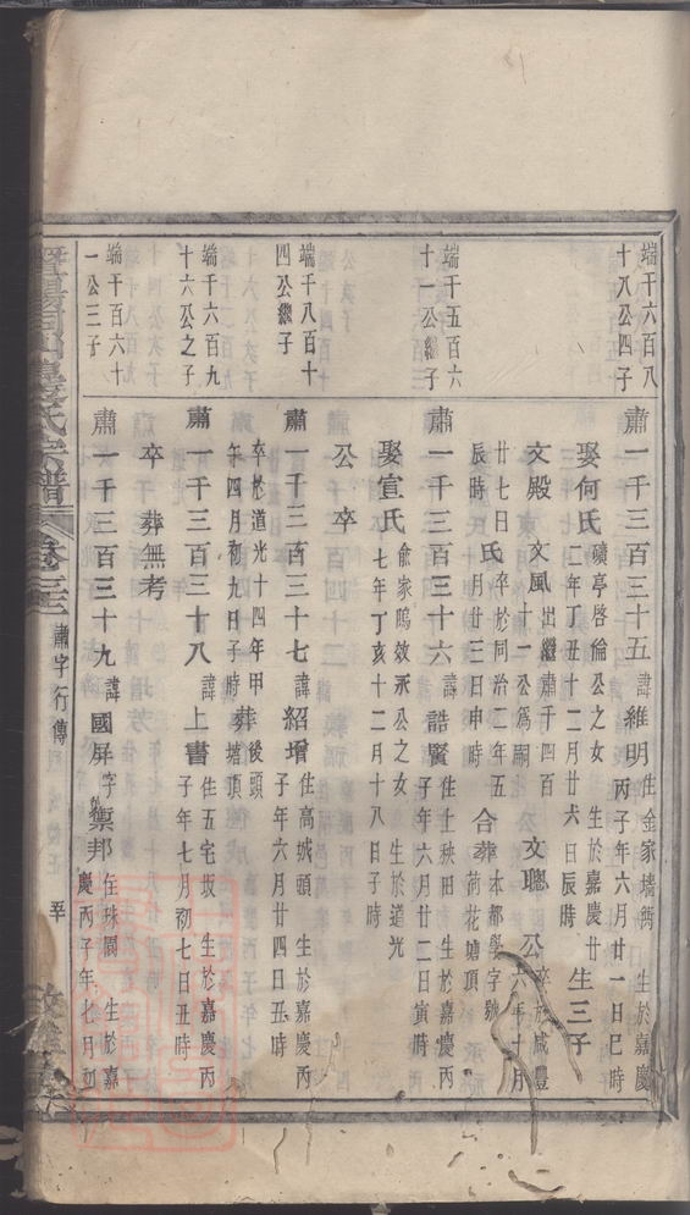 端干六百八
十八公四子
肅一千三百三十五諱維明
住金家墻衖 生於嘉慶
丙子年六月廿一日巳時
娶何氏
礦亭啓倫公之女 生於嘉慶廿
二年丁丑十二月廿六日辰時
生三子
文殿 文風
出繼肅千四百
十一公為嗣
文聰 公
卒於咸豐
六年十月
廿七日
辰時
氏
卒於同治二年五
月廿三日申時
合葬
本都學字號
荷花塘頂
端干五百六
十一公繼子
肅一千三百三十六諱誥賢
住上秧田 生於嘉慶丙
子年六月廿二日寅時
娶宣氏
俞家鴎效承公之女 生於道光
七年丁亥十二月十八日子時
公 卒
端干八百十
四公繼子
肅一千三百三十七諱紹增
住高城頭 生於嘉慶丙
子年六月廿四日丑時
卒於道光十四年甲
午四月初九日子時
葬
後頭
塘頂
端干六百九
十六公之子
肅一千三百三十八諱上書
住五宅坂 生於嘉慶丙
子年七月初七日丑時
卒 葬無考
端干百六十
一公三子
肅一千三百三十九諱國屏字禦邦
住珠閣 生於嘉
慶丙子年七月初
暨陽同山裘氏宗譜 卷三 肅字行傳